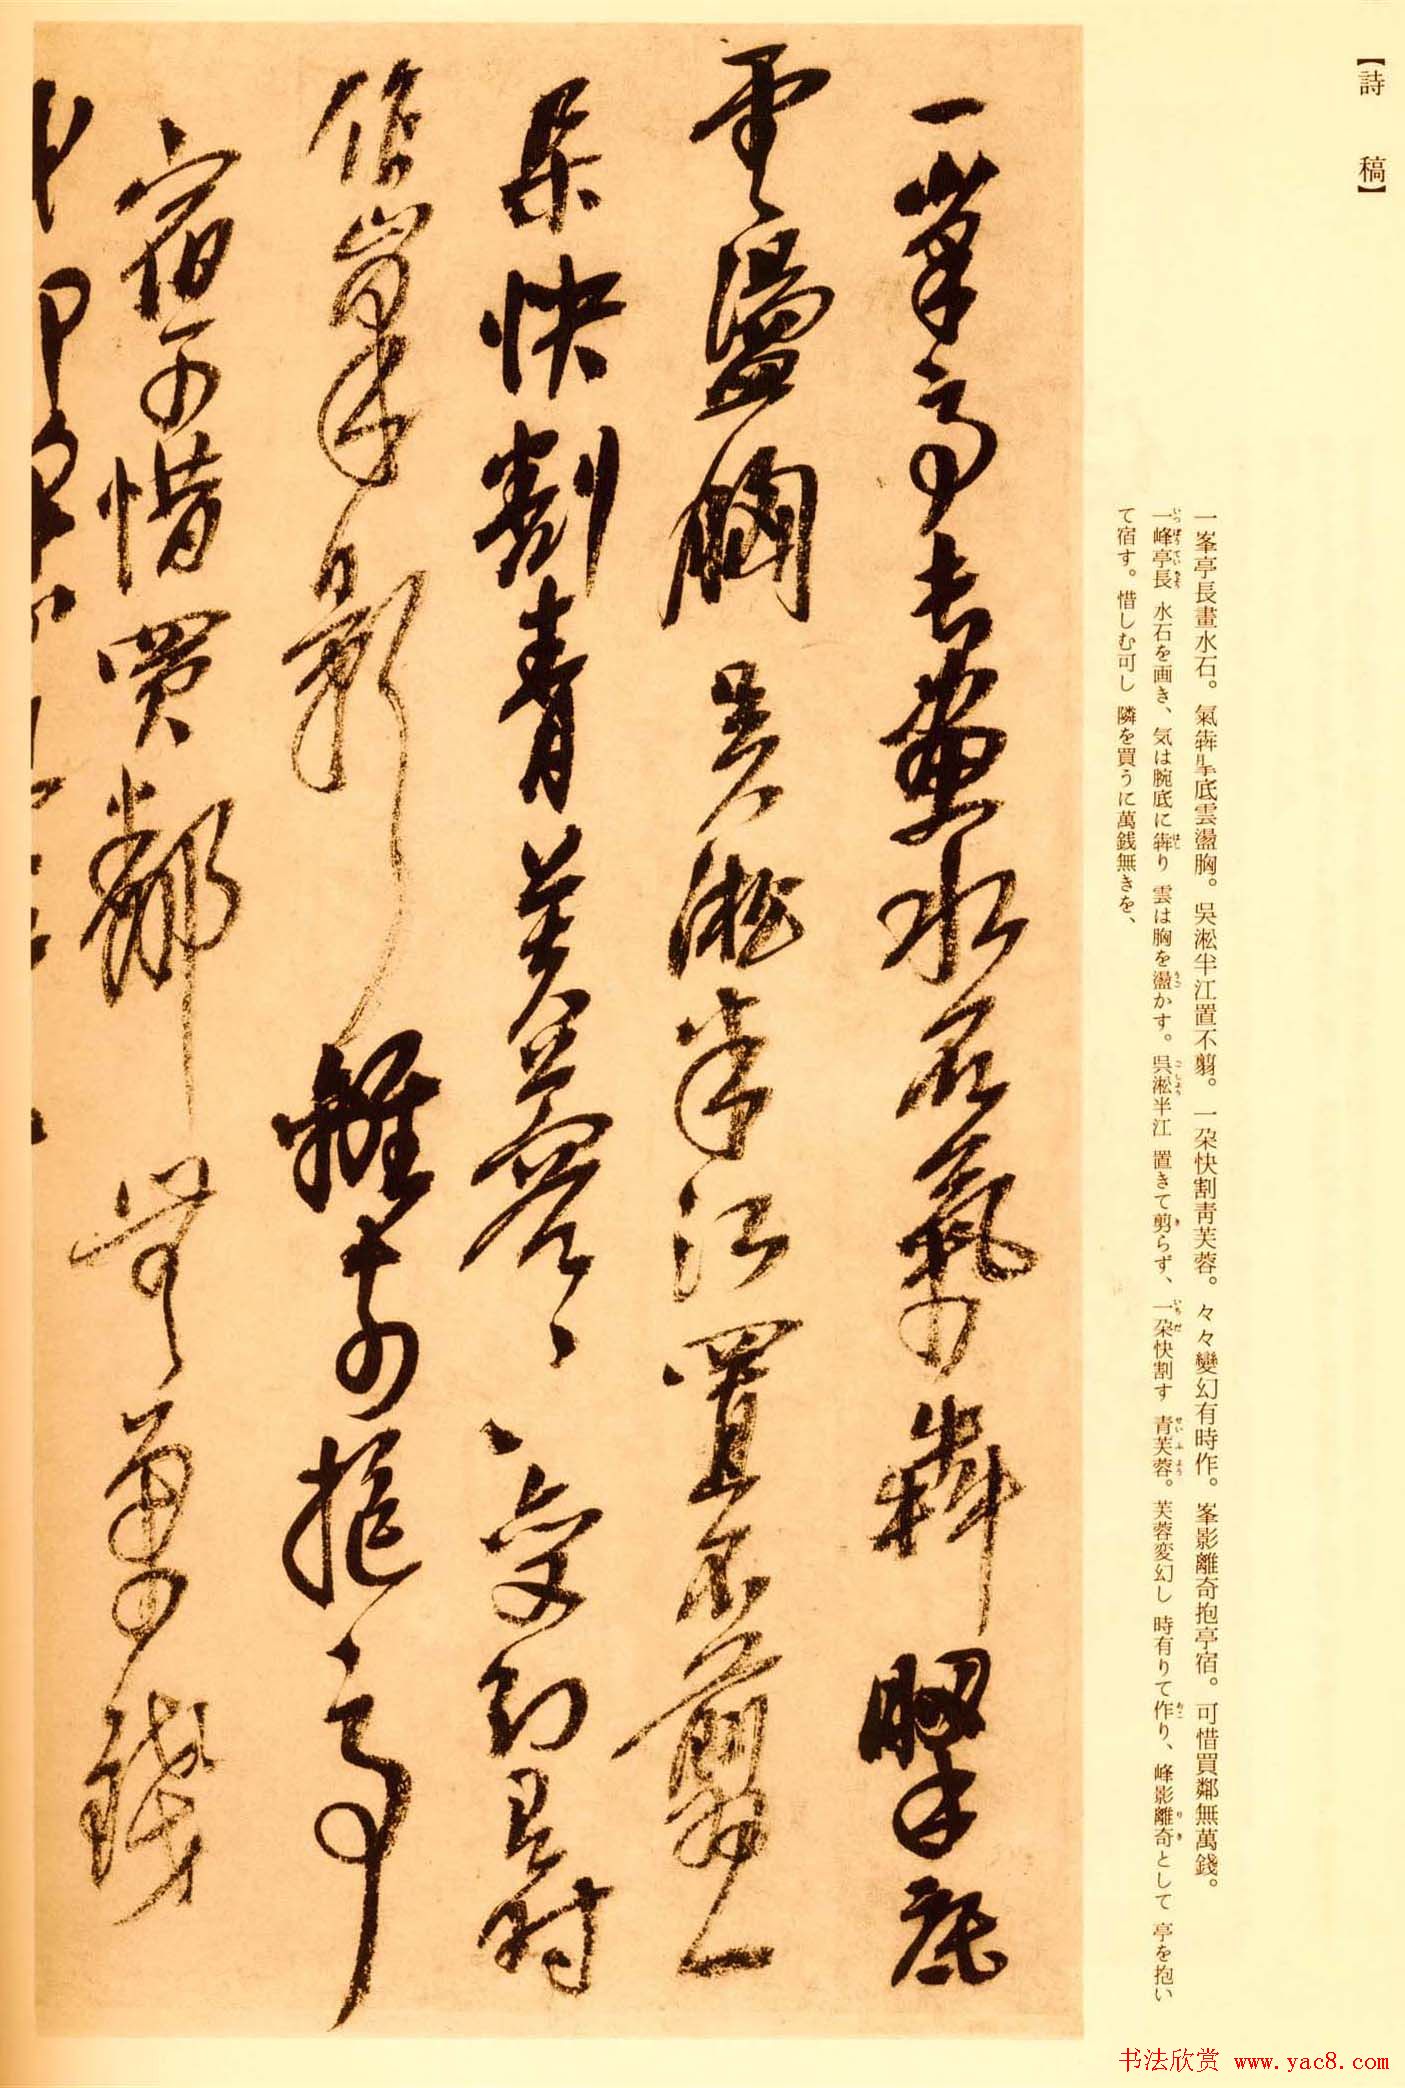 【詩稿】
一峯亭長畫水石。氣犇㫸底雲盪胸。吳淞半江置不翦。一朶快割靑芙蓉。々々變幻有時作。峯影離奇抱亭宿。可惜買鄰無萬錢。
一峰亭長 水石を画き、気は腕底に犇り 雲は胸を盪かす。呉淞半江 置きて剪らず、一朶快割す 青芙蓉。芙蓉変幻し 時有りて作り、峰影離奇として 亭を抱い
て宿す。惜しむ可し 隣を買うに萬銭無きを、
一峯亭長畫水石氣犇㫸底
雲盪胸吳淞半江置不翦一
朶快割青芙蓉々々變幻有時
作峯影離奇抱亭
宿可惜買鄰無萬錢
书法欣赏 www.yac8.com